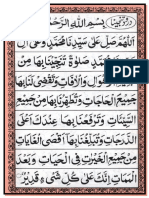 درود تنجینا بِسْمِ اللهِ الرَّحْمٰنِ
اَللّٰهُمَّ صَلِّ عَلٰى سَيِّدِنَا مُحَمَّدٍ وَّعَلٰى اٰلِ
سَيِّدِنَا مُحَمَّدٍ صَلٰوةً تُنَجِّيْنَا بِهَا مِنْ
جَمِيْعِ الْاَهْوَالِ وَالْاٰفَاتِ وَتَقْضِيْ لَنَا بِهَا
جَمِيْعَ الْحَاجَاتِ وَتُطَهِّرُنَا بِهَا مِنْ
جَمِيْعِ السَّيِّئَاتِ وَتَرْفَعُنَا بِهَا عِنْدَكَ اَعْلَى
الدَّرَجَاتِ وَتُبَلِّغُنَا بِهَا اَقْصَى الْغَايَاتِ
مِنْ جَمِيْعِ الْخَيْرَاتِ فِى الْحَيَاتِ وَبَعْدَ
الْمَمَاتِ اِنَّكَ عَلٰى كُلِّ شَىْءٍ قَدِيْرٌ